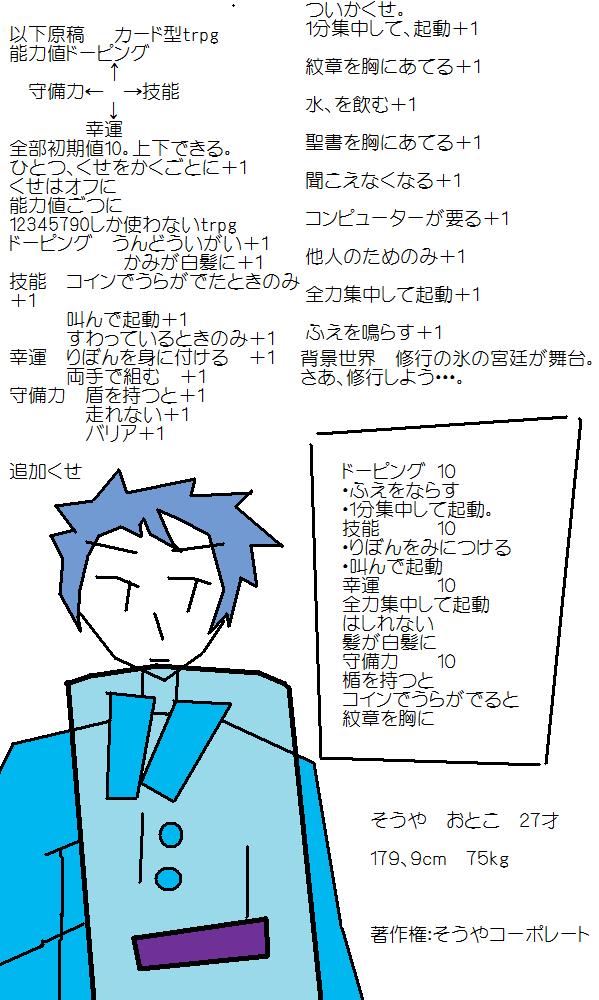 以下原稿　カード型trpg
能力値ドーピング
↑
守備力←　→技能
↓
幸運
全部初期値10。上下できる。
ひとつ、くせをかくごとに＋1
くせはオフに
能力値ごつに
12345790しか使わないtrpg
ドーピング　うんどういがい＋1
かみが白髪に＋1
技能　コインでうらがでたときのみ
＋1
叫んで起動＋1
すわっているときのみ＋1
幸運　りぼんを身に付ける　＋1
両手で組む　＋1
守備力　盾を持つと＋1
走れない＋1
バリア＋1
追加くせ
ついかくせ。
1分集中して、起動＋1
紋章を胸にあてる＋1
水、を飲む＋1
聖書を胸にあてる＋1
聞こえなくなる＋1
コンピューターが要る＋1
他人のためのみ＋1
全力集中して起動＋1
ふえを鳴らす＋1
背景世界　修行の氷の宮廷が舞台。
さあ、修行しよう・・・。
ドーピング　10
・ふえをならす
・1分集中して起動。
技能　　　10
・りぼんをみにつける
・叫んで起動
幸運　　　10
全力集中して起動
はしれない
髪が白髪に
守備力　　10
楯を持つと
コインでうらがでると
紋章を胸に
そうや　おとこ　27才
179、9cm　75kg
著作権:そうやコーポレート